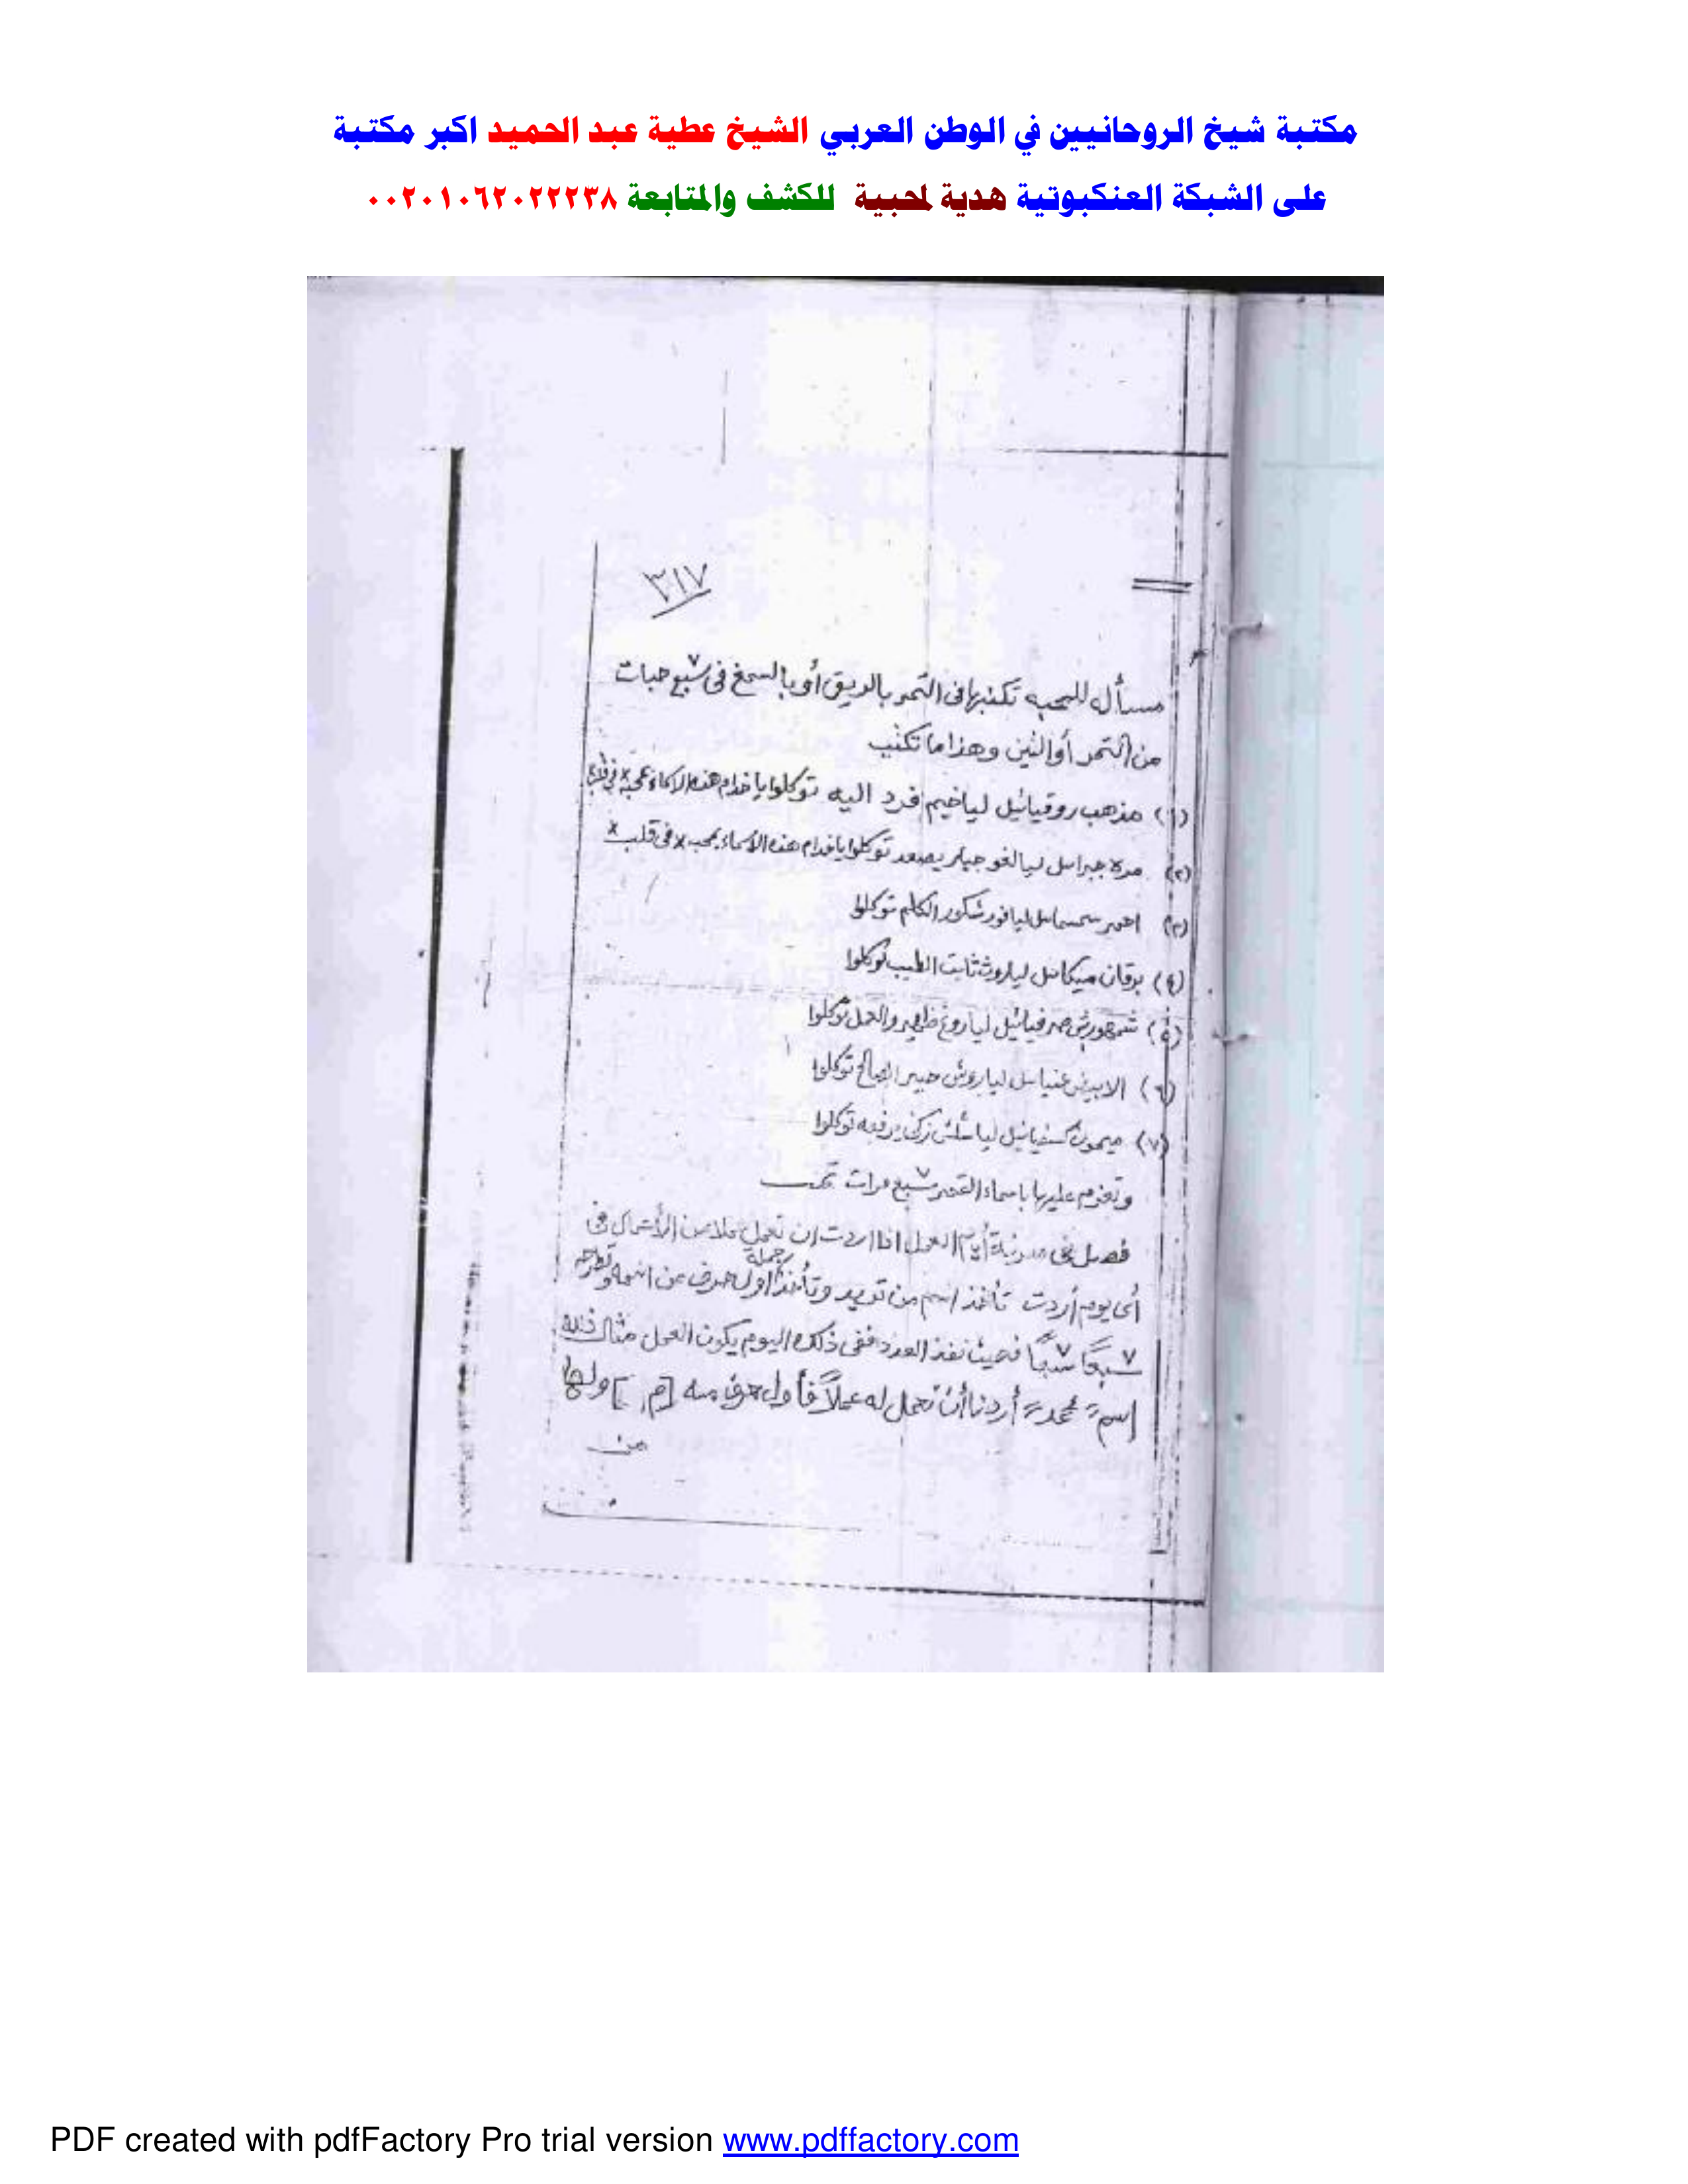 مكتبة شيخ الروحانيين في الوطن العربي الشيخ عطية عبد الحميد اكبر مكتبة
على الشبكة العنكبوتية هدية لمحبية للكشف والمتابعة ٠٠٢٠١٠٦٢٠٢٢٢٣٨
٣١٧
مسأله للمحبه تكتبها فى التمر بالريق أو بالسمغ فى سبع ٧ حبات
من التمر أو التين وهذا ما تكتب
(١) مذهب روقيائيل لياخيم فرد اليه توكلوا يا خدام هذه الاسماء بمحبة × فى قلب
(٢) مرة جبرايل ليالغو جبار يصعد توكلوا يا خدام هذه الأسماء بمحبة × فى قلب ×
(٣) احمر سمسمايل ليافور شكور الكلم توكلوا
(٤) برقان ميكايل لياروث ثابت الطيب توكلوا
(٥) شمهورش صرفيائيل لياروغ ظهير والعمل توكلوا
(٦) الابيض عنيايل لياروش خبير الصالح توكلوا
(٧) ميمون كسفيائيل لياشلش زكى يرفعه توكلوا
وتعزم عليها باسماء القمر سبع ٧ مرات تمت
فصل فى معرفة أيام العمل اذا اردت ان تعمل عملا من الأعمال فى
أى يوم أردت تأخذ اسم من تريد وتأخذ جملة اول حرف من اسمه وتطرحه
سبعًا ٧ سبعًا ٧ فحيث نفذ العدد ففى ذلك اليوم يكون العمل مثال ذلك
إسم " محمد " أردنا أن نعمل له عملاً فأول حرف منه [م] ولها
من
PDF created with pdfFactory Pro trial version www.pdffactory.com